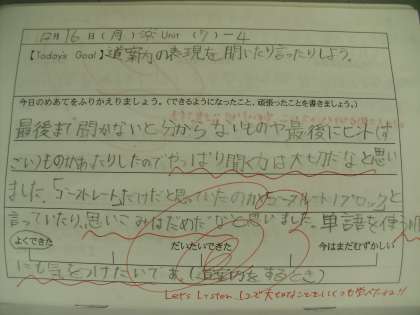 12月16日(月) 楽 Unit (7)-4
【Todays Goal】道案内の表現を聞いたり言ったりしよう。
今日のめあてをふりかえりましょう。(できるようになったこと、頑張ったことを書きましょう。)
最後まで聞かないと分からないものや最後にヒントがす
ごいものがあったりしたのでやっぱり聞く力は大切だなと思い
ました。「ゴーストレート」だけだと思っていたのが「ゴーストレート1ブロック」と
言っていたり、思いこみはだめだなと思いました。単語を使う時
よくできた だいたいできた 今はまだむずかしい
にも気をつけたいです。(道案内をするとき)